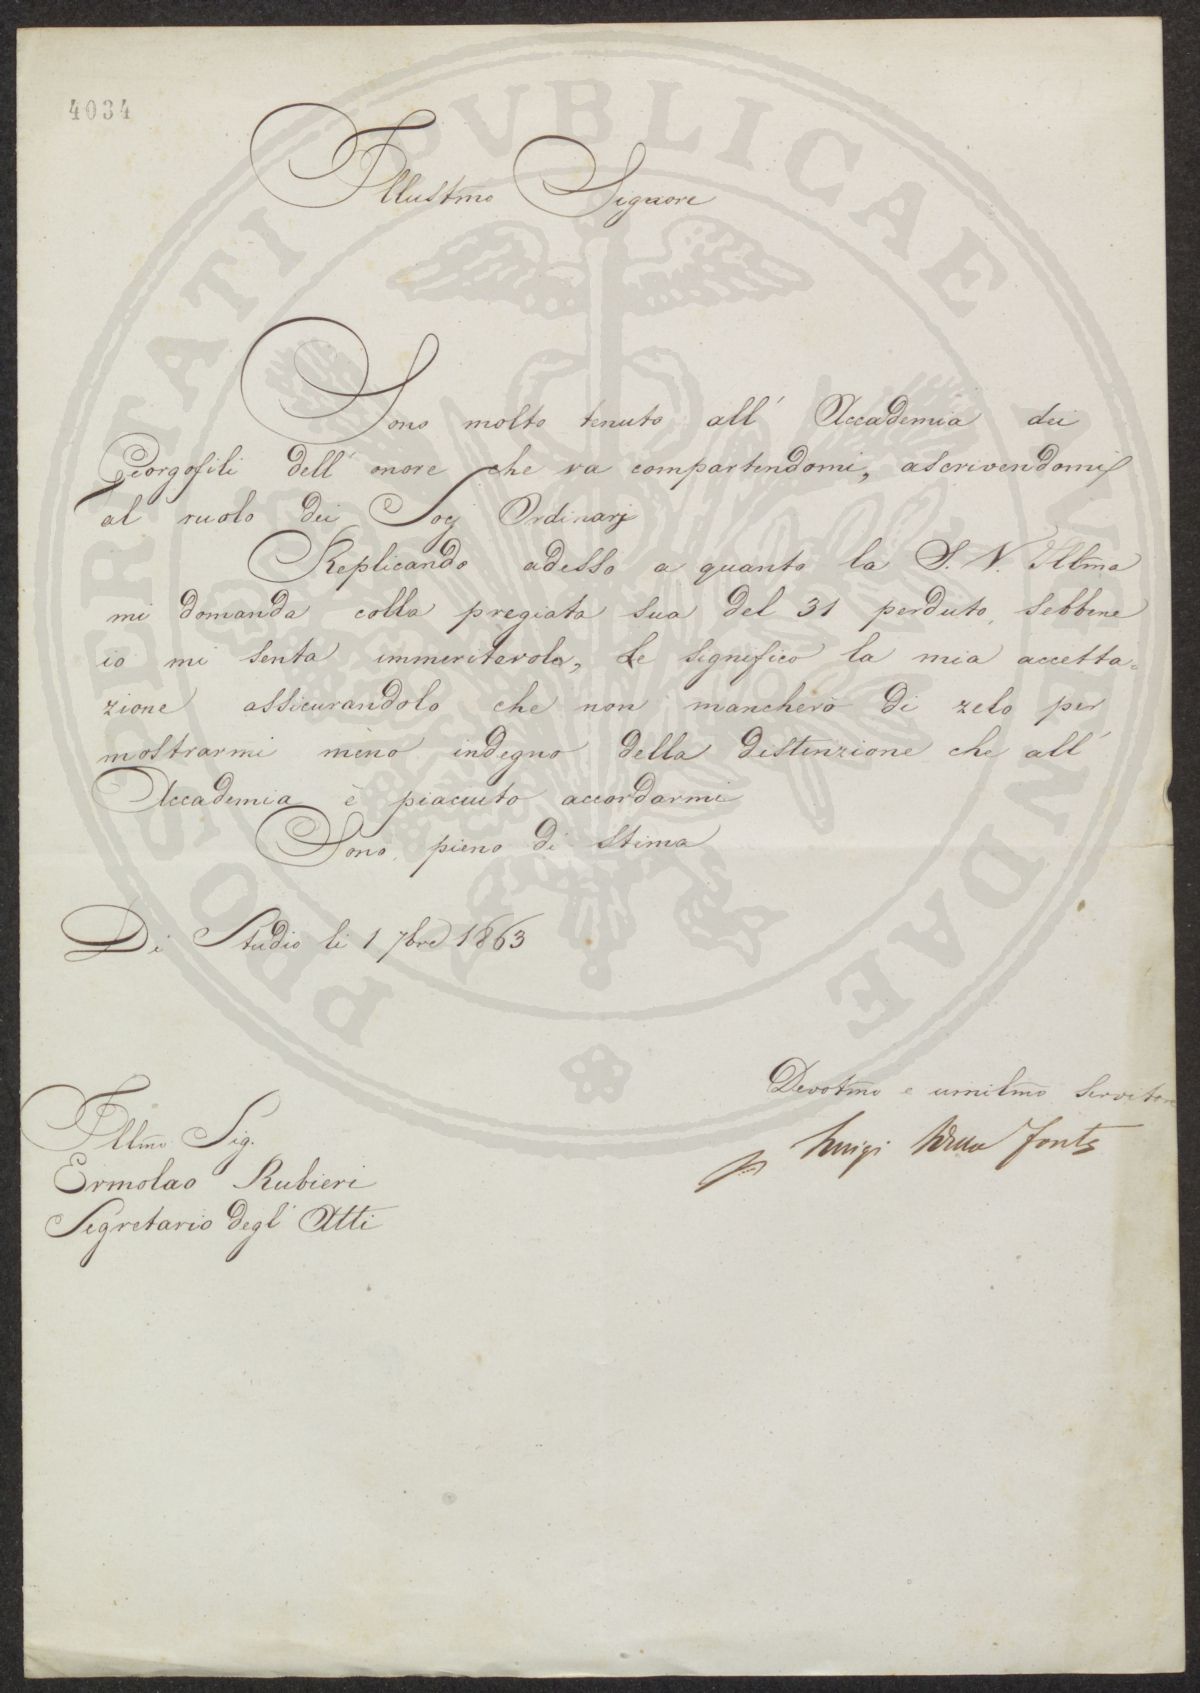 4034
Illustmo Signore
Sono molto tenuto all' Accademia dei
Georgofili dell' onore che va compartendomi, ascrivendomi
al ruolo dei Socj Ordinarj
Replicando adesso a quanto la S. V. Illma
mi domanda colla pregiata sua del 31 perduto, sebbene
io mi senta immeritevole, Le significo la mia accetta-
zione assicurandolo che non mancherò di zelo per
mostrarmi meno indegno della distinzione che all'
Accademia è piaciuto accordarmi
Sono pieno di stima
Di Studio li 1 7bre 1863
Devotmo e umilmo servitore
Luigi Della Fonte
Illmo Sig.
Ermolao Rubieri
Segretario degl' Atti
PROSPERITATI PVBLICAE AVGENDAE